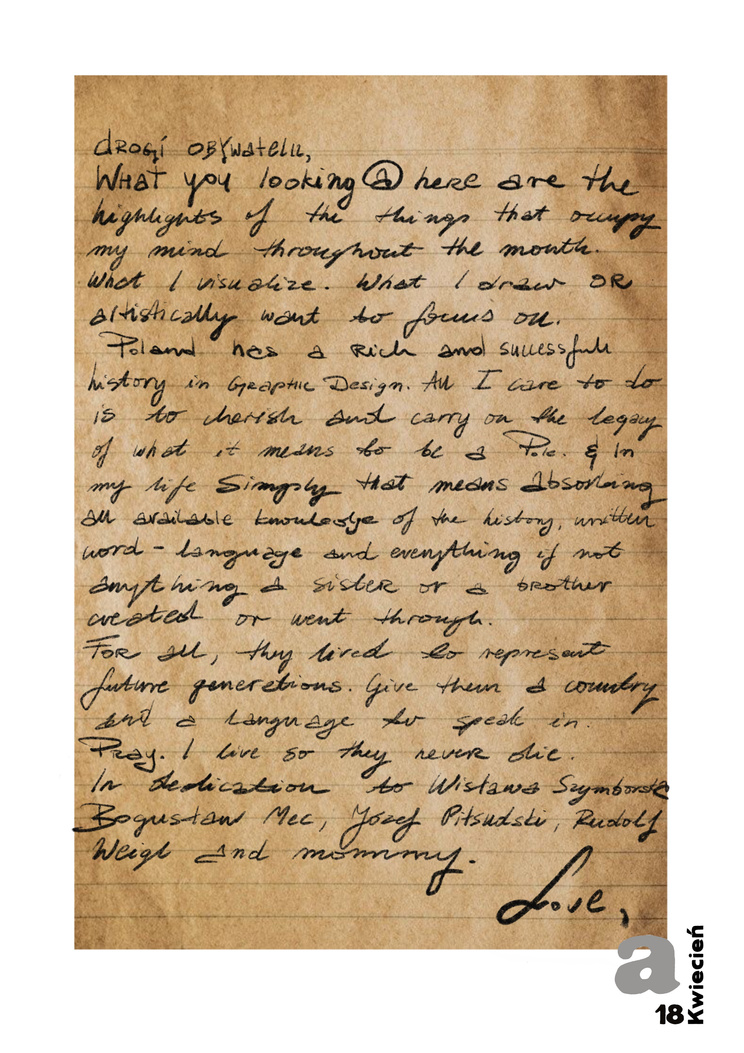 drogi obywatelu,
What you looking @ here are the
highlights of the things that occupy
my mind throughout the month.
What I visualize. What I draw OR
artistically want to focus on.
Poland has a rich and successfull
history in Graphic Design. All I care to do
is to cherish and carry on the legacy
of what it means to be a Pole. & In
my life simply that means absorbing
all available knowledge of the history, written
word - language and everything if not
anything a sister or a brother
created or went through.
For all, they lived to represent
future generations. Give them a country
and a language to speak in.
Pray. I live so they never die.
In dedication to Wisława Szymborska
Bogusław Mec, Józef Piłsudski, Rudolf
Weigl and mommmy.
Love,
a
18
Kwiecień